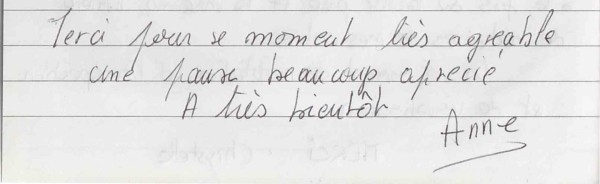 Merci pour se moment très agréable
une pause beaucoup aprécié
A très bientôt
Anne